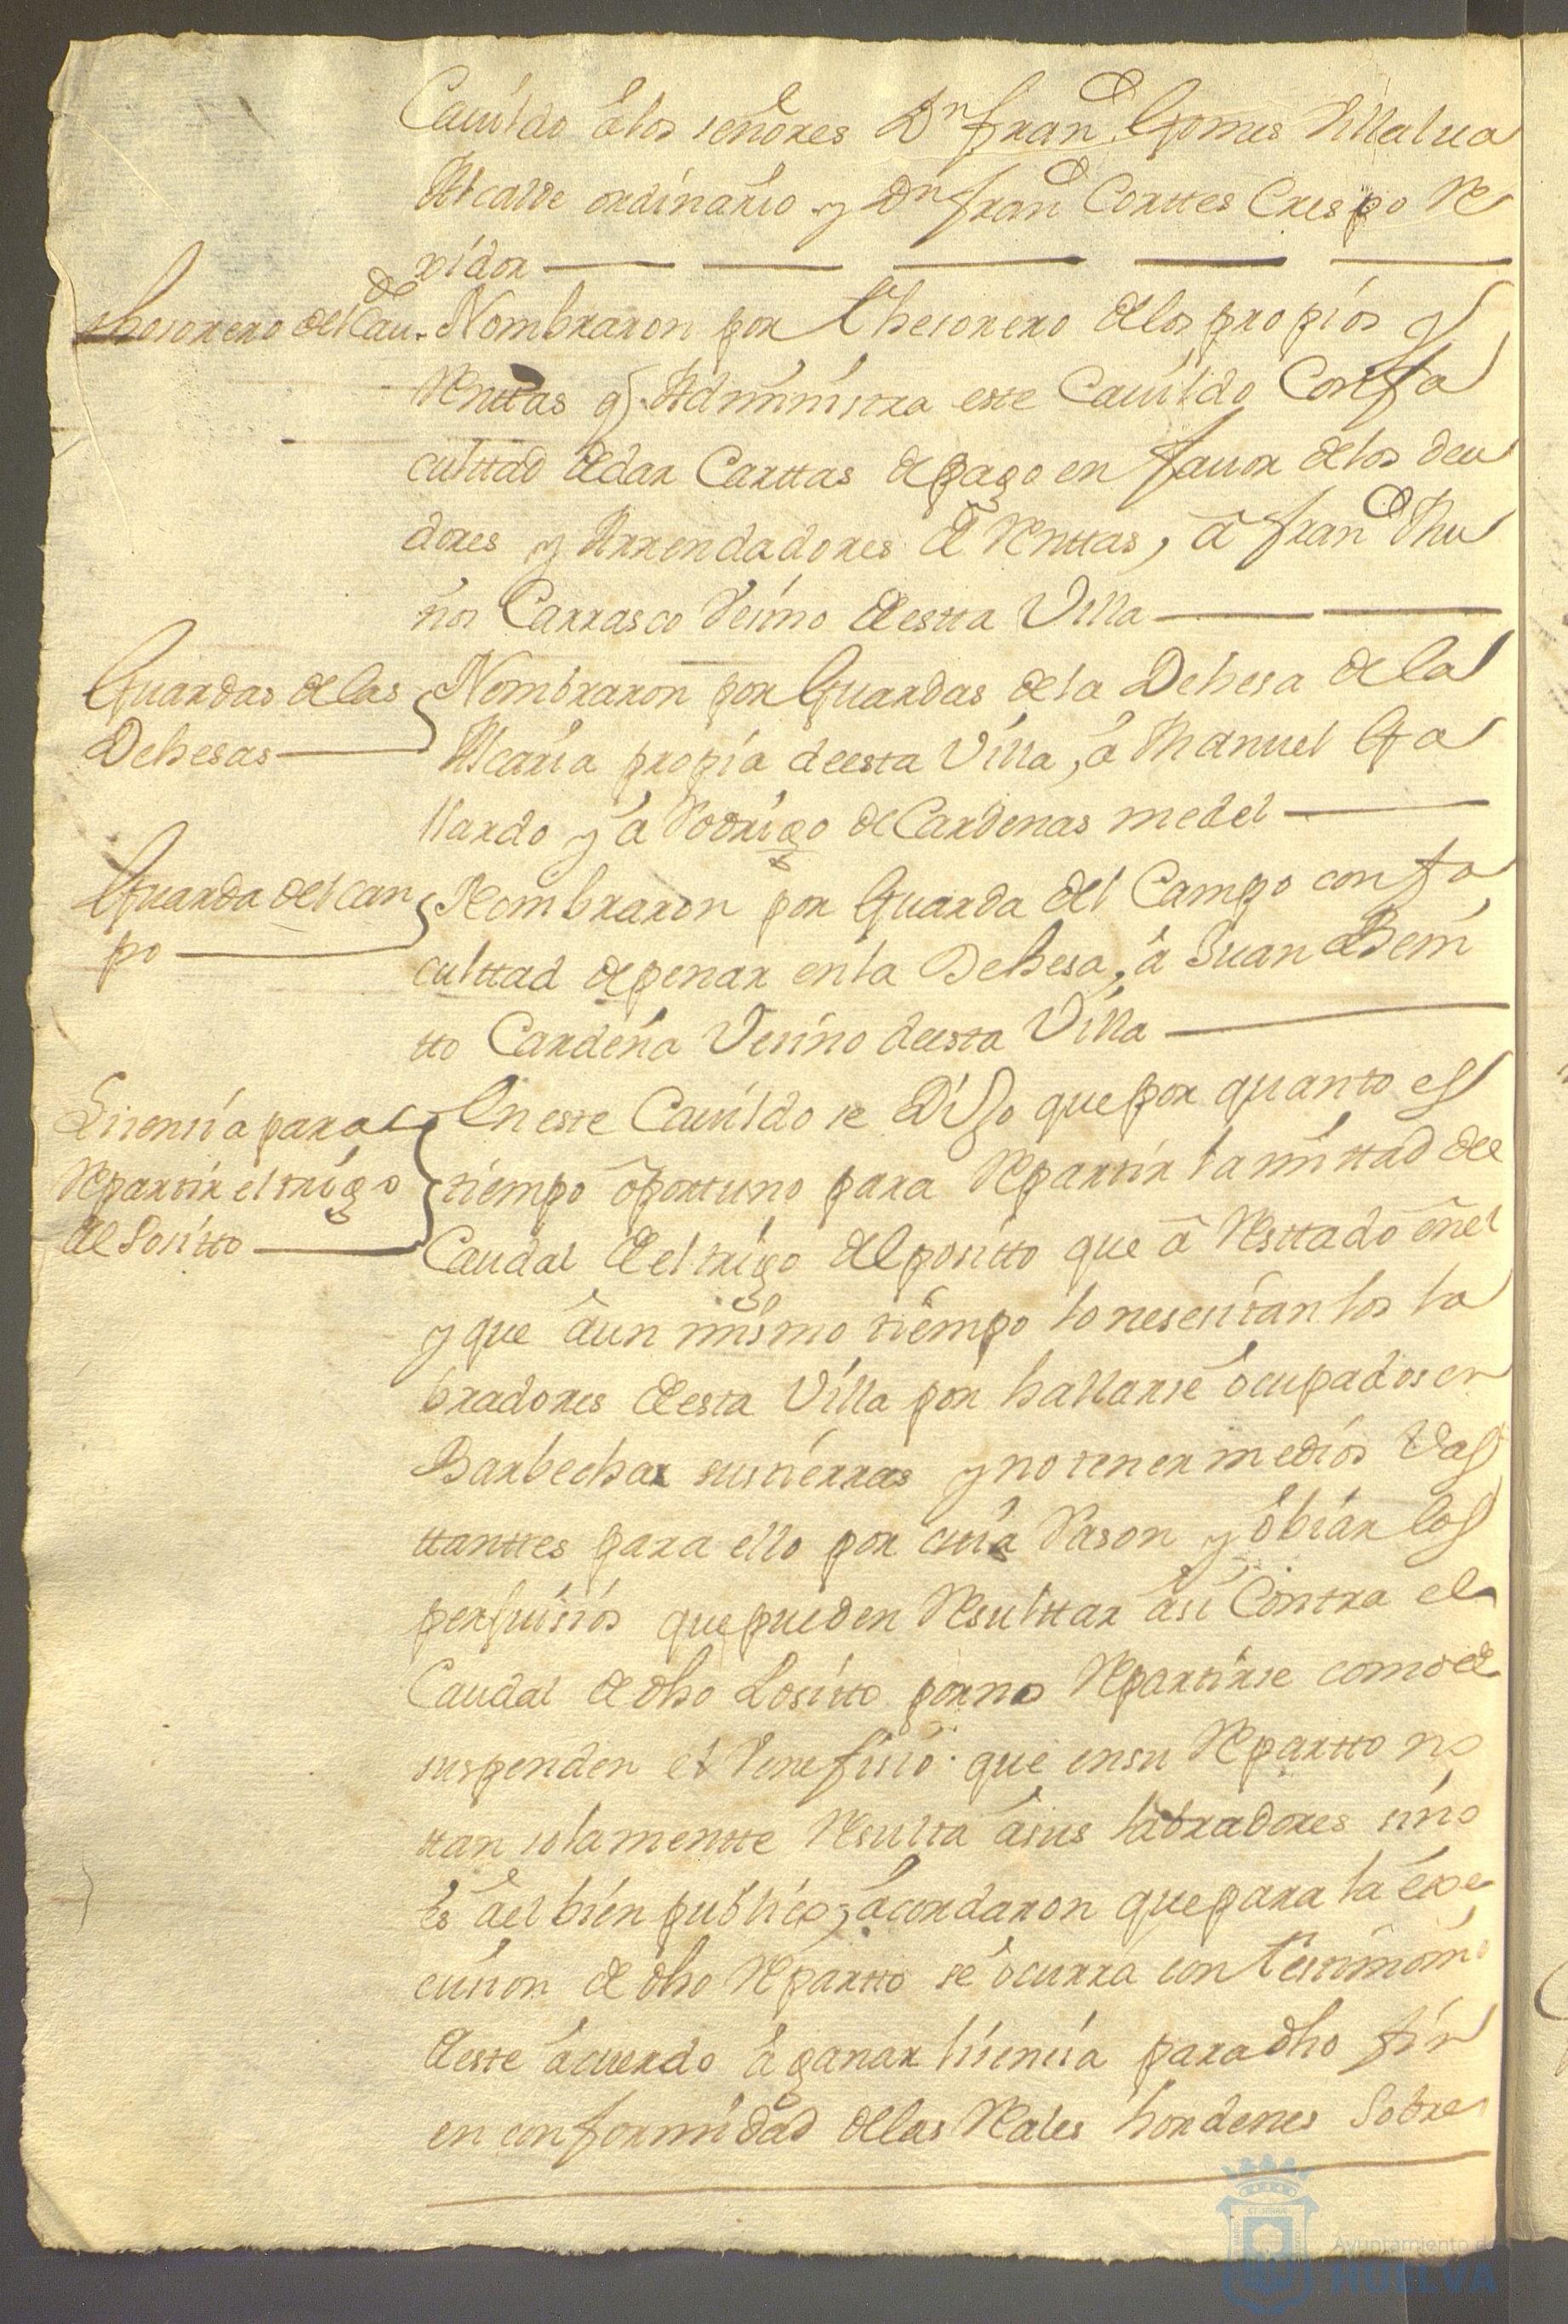 Cauildo â los señores Dn franco Gomes Villalua
Alcalde ordinario y Dn franco Corttes Crespo Re
xidor
thesorero del Caudo
Nombraron por thesorero de los propios y
Renttas q. Administra este Cauildo Con fa
culttad de dar Carttas de pago en fauor de los deu
dores y Arrendadores de Renttas, â franco Mu
ños Carrasco Vesino de estta Villa
Guardas de las
Dehesas
Nombraron por Guardas de la Dehesa de la
Alcaria propia de esta Villa, â Manuel Ga
llardo y â Rodrigo de Cardenas medel
Guarda del can
po
Nombraron por Guarda del Campo con fa
culttad de penar en la Dehesa, â Juan Beni
tto Cardeña Vesino de esta Villa
Lisensia para
Repartir el trigo
del Positto
En este Cauildo se Dijo que por quanto es
tiempo ôporttuno para Repartir la mittad de
Caudal de el trigo del positto que â Resttado en el
y que âun mismo tiempo lo nesesitan los la
bradores de esta Villa por hallarse ôcupados en
Barbechar sus tierras y no tener medios Vas
ttanttes para ello por cuia Rason y ôbiar los
perjuisios que pueden Resulttar âsi Contra el
Caudal de dho Positto por no Repartirse como el
suspender el Venefisio que en su Repartto no
ttan solamentte Resulta â sus labradores sino
es âel bien publico, âcordaron que para la exe
cusion de dho Repartto se ôcurra con testimoni
de este âcuerdo â ganar lisensia para dho fin
en conformidad de las Reales hordenes Sobre
Ayuntamiento de
HUELVA